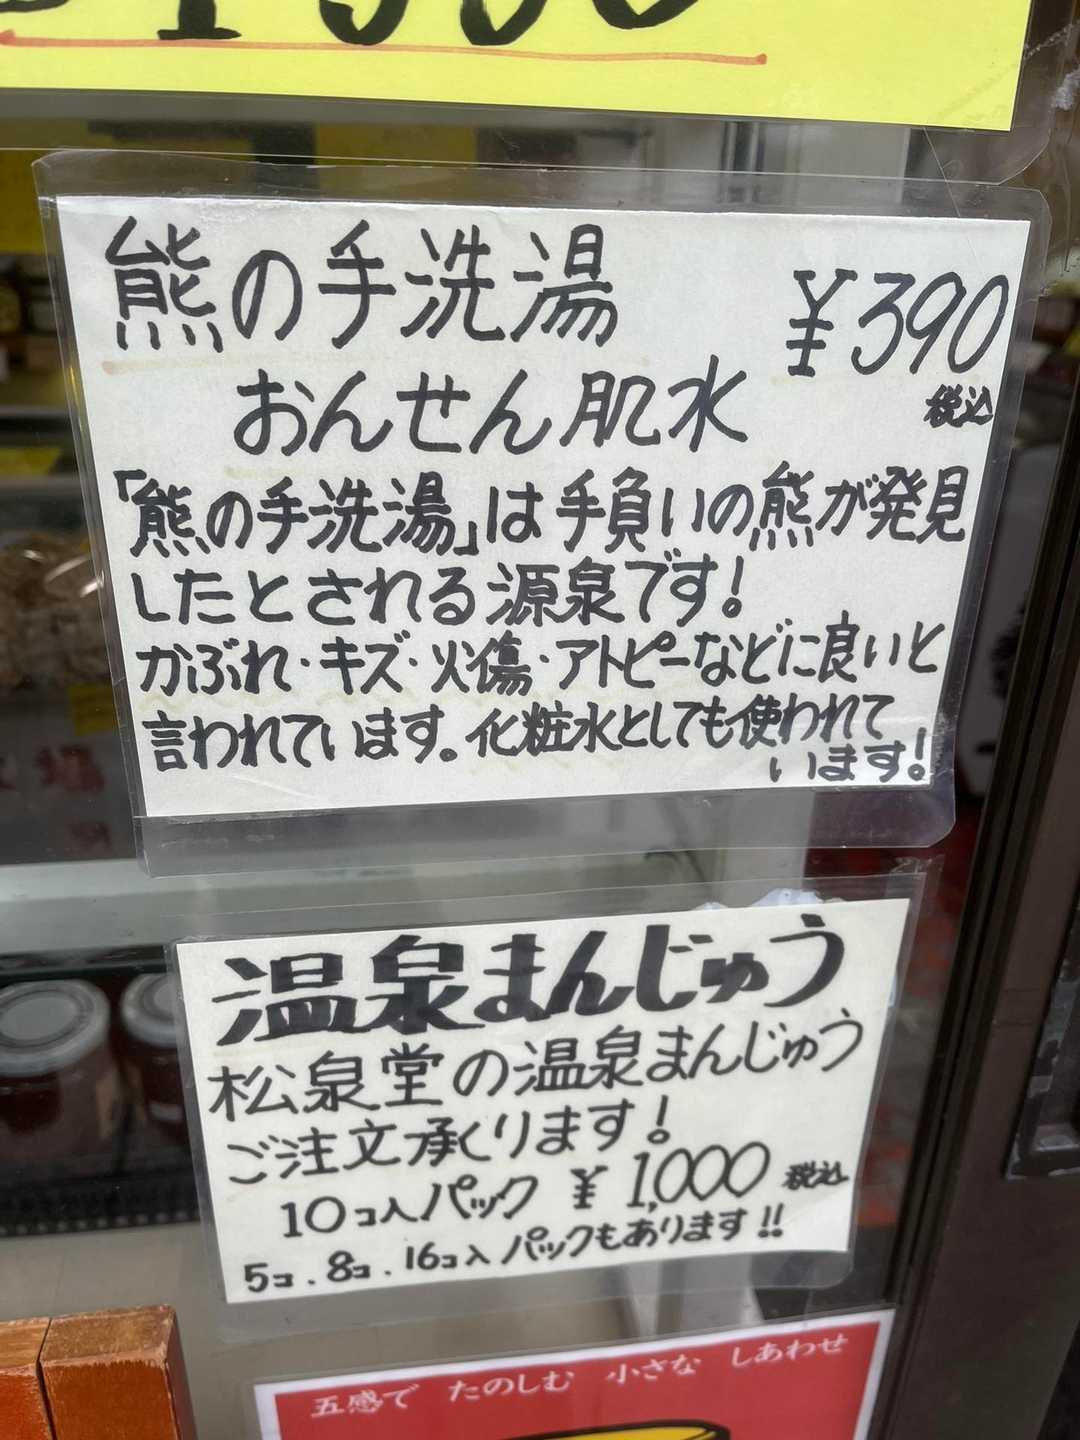 熊の手洗湯 ¥390
税込
おんせん肌水
「熊の手洗湯」は手負いの熊が発見
したとされる源泉です!
かぶれ・キズ・火傷・アトピーなどに良いと
言われています。化粧水としても使われて
います!
温泉まんじゅう
松泉堂の温泉まんじゅう
ご注文承くります!
10コ入パック ¥1,000 税込
5コ.8コ.16コ入パックもあります!!
五感で たのしむ 小さな しあわせ